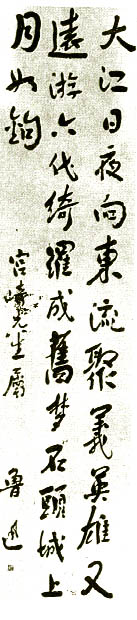 大江日夜向東流聚義英雄又
遠游六代綺羅成舊夢石頭城上
月如鉤
宮崎先生属
魯迅